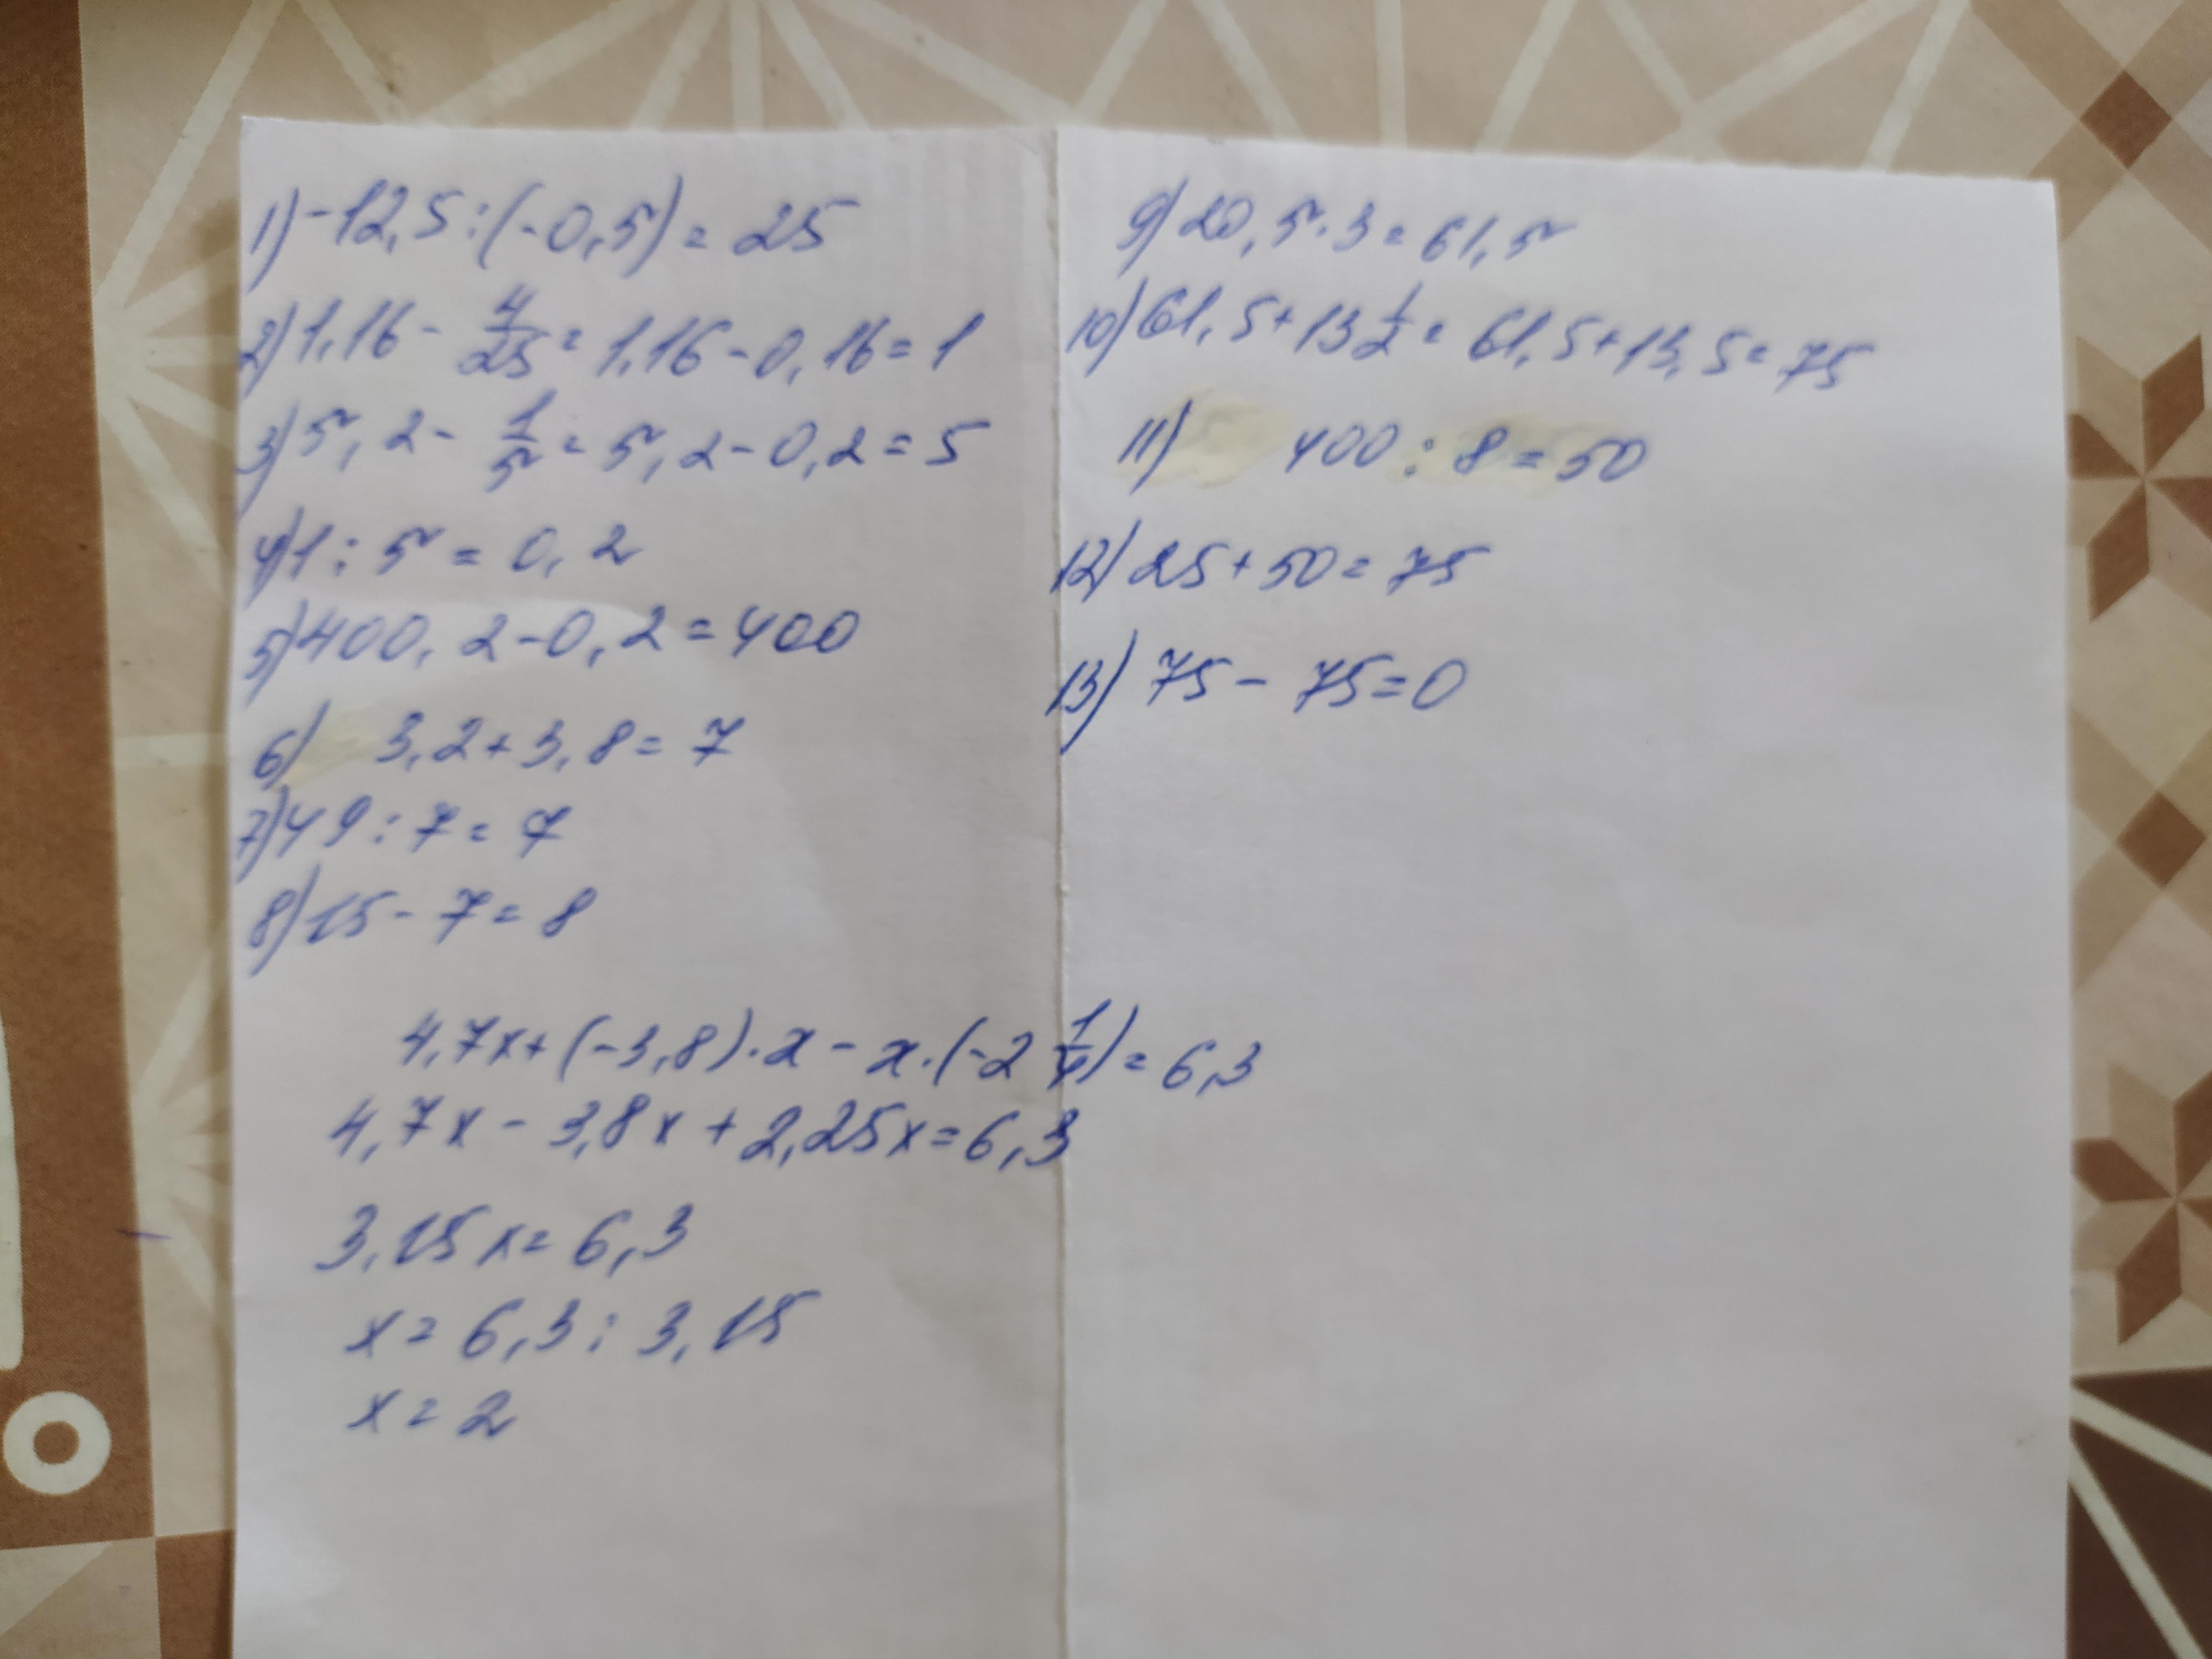 1) -12,5:(-0,5)=25
2) 1,16 - 4/25 = 1,16 - 0,16 = 1
3) 5,2 - 1/5 = 5,2 - 0,2 = 5
4) 1 : 5 = 0,2
5) 400,2 - 0,2 = 400
6) 3,2 + 3,8 = 7
7) 49 : 7 = 7
8) 15 - 7 = 8
9) 20,5 · 3 = 61,5
10) 61,5 + 13 1/2 = 61,5 + 13,5 = 75
11) 400 : 8 = 50
12) 25 + 50 = 75
13) 75 - 75 = 0
4,7x + (-3,8) · x - x · (-2 1/4) = 6,3
4,7x - 3,8x + 2,25x = 6,3
3,15x = 6,3
x = 6,3 : 3,15
x = 2